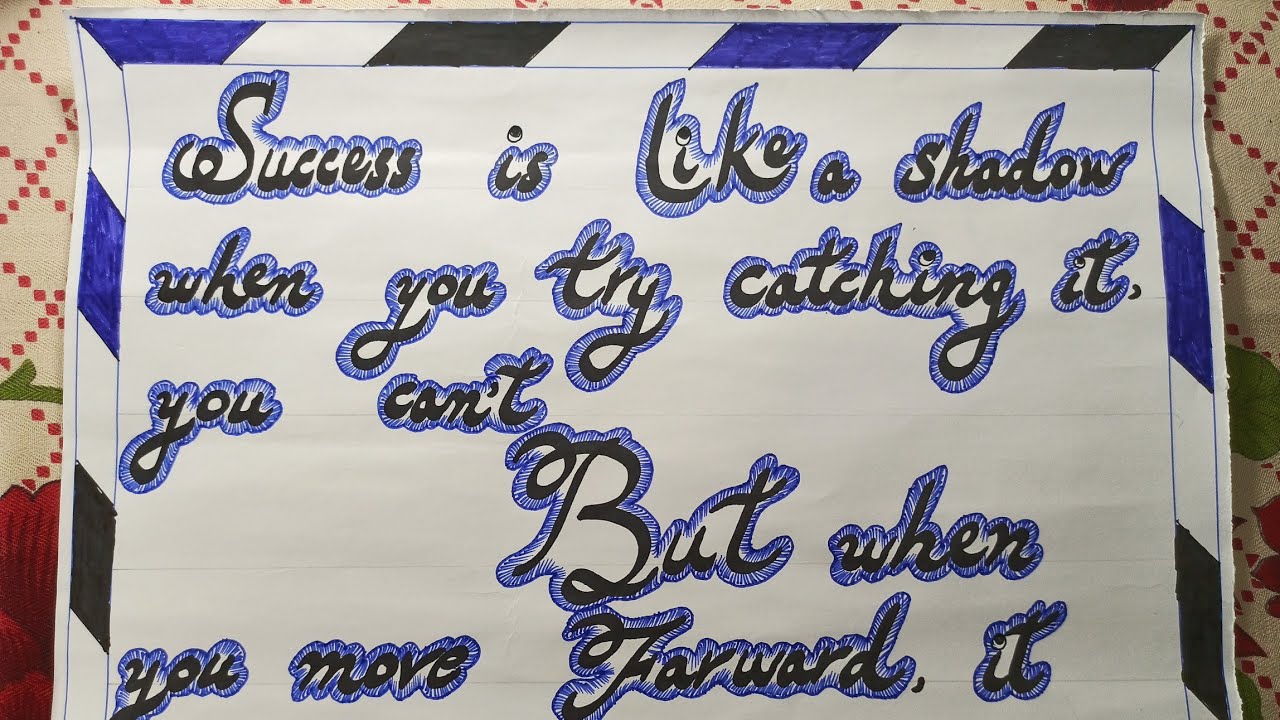 Success is Like a shadow
when you try catching it,
you can't
But when
you move Farward, it